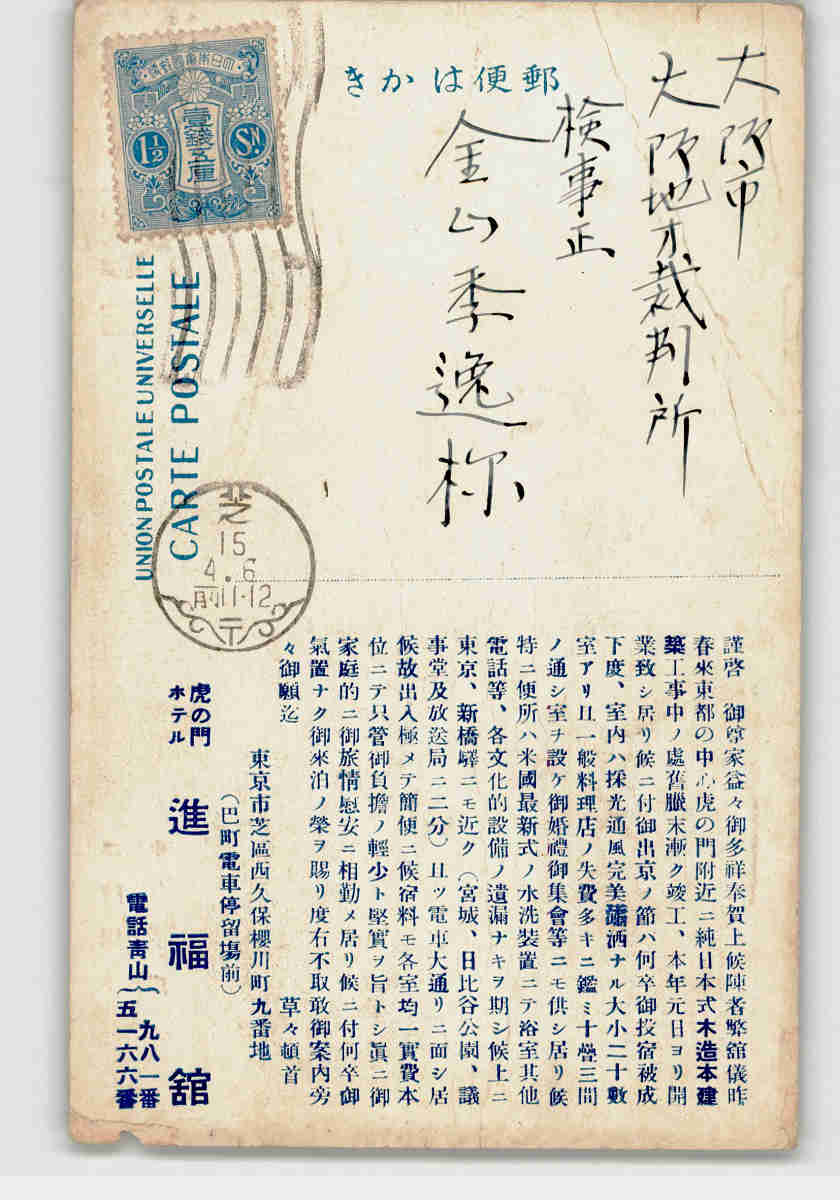 郵便はかき
大阪市
大阪地方裁判所
検事正
金山季逸様
大日本帝國郵便
壹錢五厘
1½ Sn.
UNION POSTALE UNIVERSELLE
CARTE POSTALE
芝
15
4.6
前11-12
謹啓 御尊家益々御多祥奉賀上候陳者弊舘儀昨
春來東都の中心虎の門附近ニ純日本式木造本建
築工事中ノ處舊臘末漸ク竣工、本年元日ヨリ開
業致シ居リ候ニ付御出京ノ節ハ何卒御投宿被成
下度、室内ハ採光通風完美瀟洒ナル大小二十數
室アリ且一般料理店ノ失費多キニ鑑ミ十疊三間
ノ通シ室ヲ設ケ御婚禮御集會等ニモ供シ居リ候
特ニ便所ハ米國最新式ノ水洗裝置ニテ浴室其他
電話等、各文化的設備ノ遺漏ナキヲ期シ候上ニ
東京、新橋驛ニモ近ク(宮城、日比谷公園、議
事堂及放送局ニ二分)且ツ電車大通リニ面シ居
候故出入極メテ簡便ニ候宿料モ各室均一實費本
位ニテ只管御負擔ノ輕少ト堅實ヲ旨トシ眞ニ御
家庭的ニ御旅情慰安ニ相勤メ居リ候ニ付何卒御
氣置ナク御來泊ノ榮ヲ賜リ度右不取敢御案内旁
々御願迄 草々頓首
東京市芝區西久保櫻川町九番地
(巴町電車停留場前)
虎の門
ホテル
進福舘
電話青山
九八一番
五一六六番